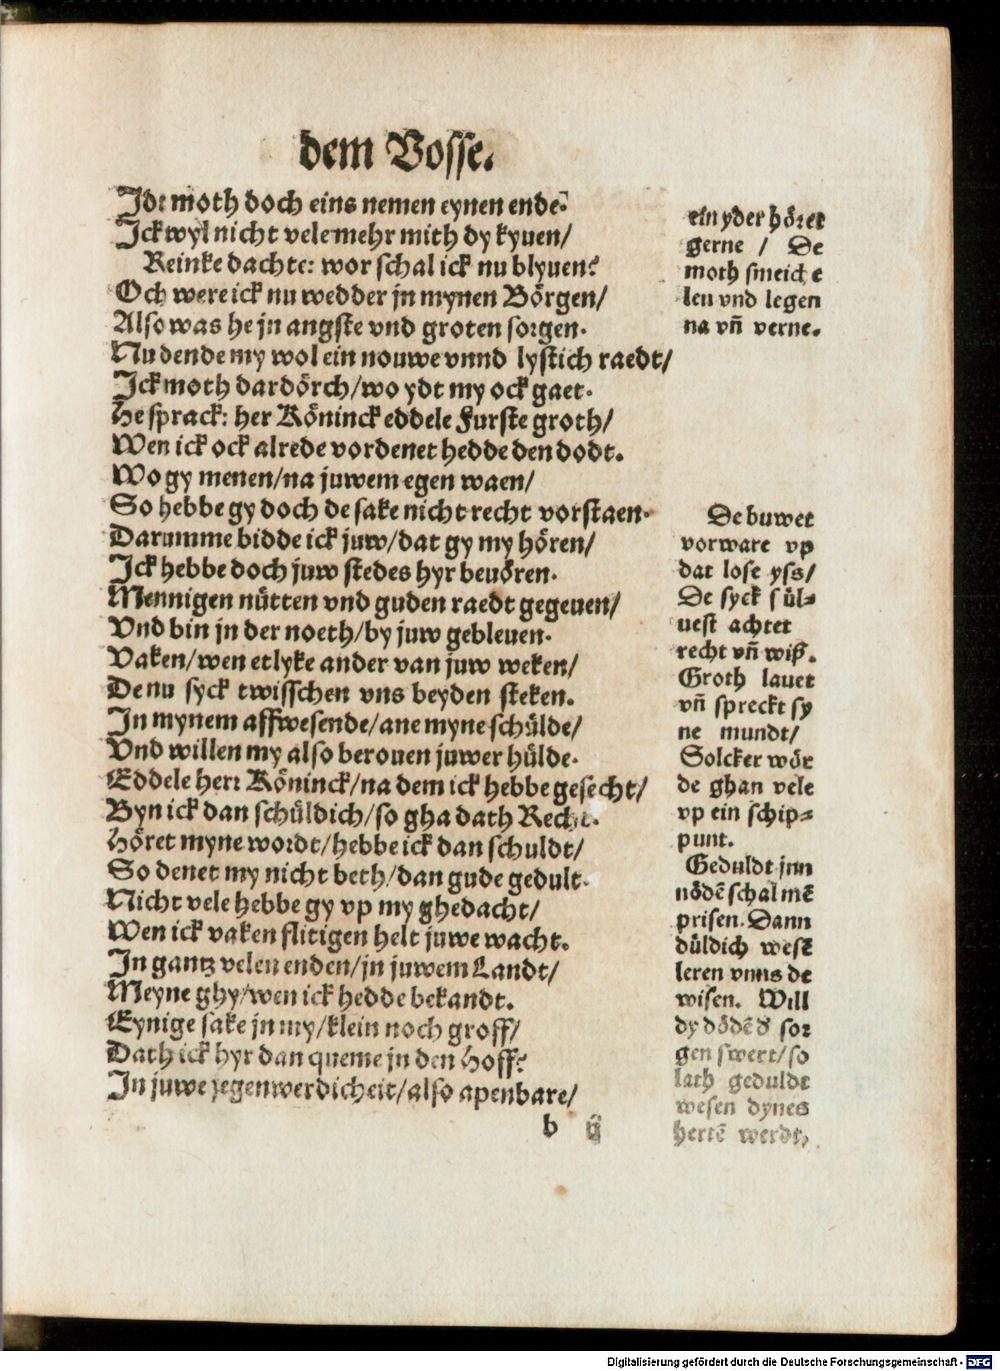 dem Vosse.
Idt moth doch eins nemen eynen ende.
Ick wyl nicht vele mehr mith dy kyuen/
Reinke dachte: wor schal ick nu blyuen?
Och were ick nu wedder jn mynen Börgen/
Also was he jn angste vnd groten sorgen.
Nu dende my wol ein nouwe vnnd lystich raedt/
Ick moth dardörch/wo ydt my ock gaet.
He sprack: her Köninck eddele Furste groth/
Wen ick ock alrede vordenet hedde den dodt.
Wo gy menen/na juwem egen waen/
So hebbe gy doch de sake nicht recht vorstaen.
Darumme bidde ick juw/dat gy my hören/
Ick hebbe doch juw stedes hyr beuören.
Mennigen nütten vnd guden raedt gegeuen/
Vnd bin jn der noeth/by juw gebleuen.
Vaken/wen etlyke ander van juw weken/
De nu syck twisschen vns beyden steken.
In mynem affwesende/ane myne schülde/
Vnd willen my also berouen juwer hülde.
Eddele herr Köninck/na dem ick hebbe gesecht/
Byn ick dan schüldich/so gha dath Recht.
Höret myne wordt/hebbe ick dan schuldt/
So denet my nicht beth/dan gude gedult.
Nicht vele hebbe gy vp my ghedacht/
Wen ick vaken flitigen helt juwe wacht.
In gantz velen enden/jn juwem Landt/
Meyne ghy/wen ick hedde bekandt.
Eynige sake jn my/klein noch groff/
Dath ick hyr dan queme jn den Hoff?
In juwe jegenwerdicheit/also apenbare/
b ij
ein yder höret
gerne / De
moth smeiche
len vnd legen
na vñ verne.
De buwet
vorware vp
dat lose yss/
De syck sül⸗
uest achtet
recht vñ wiß.
Groth lauet
vñ spreckt sy
ne mundt/
Solcker wör
de ghan vele
vp ein schip⸗
punt.
Geduldt jnn
nödē schal mē
prisen. Dann
düldich wesē
leren vnns de
wisen. Will
dy dödē đ sor
gen swert/so
lath geduldt
wesen dynes
hertē werdt,
Digitalisierung gefördert durch die Deutsche Forschungsgemeinschaft - DFG